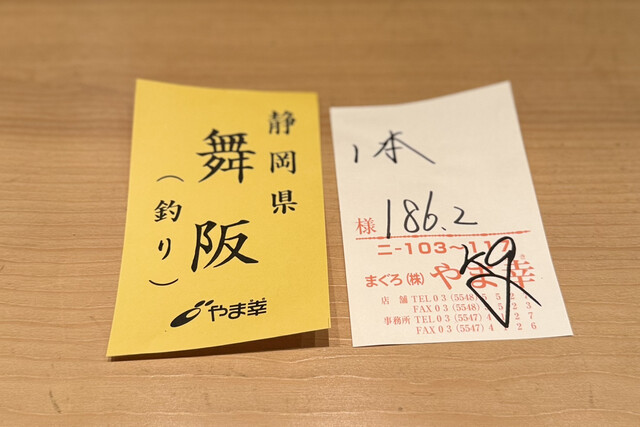 静岡県
舞阪
(釣り)
やま幸
1本
様 186.2
ニ-103〜117
まぐろ(株)やま幸
店舗 TEL03(5548)
FAX03(5548)
事務所 TEL03(5547)
FAX03(5547)